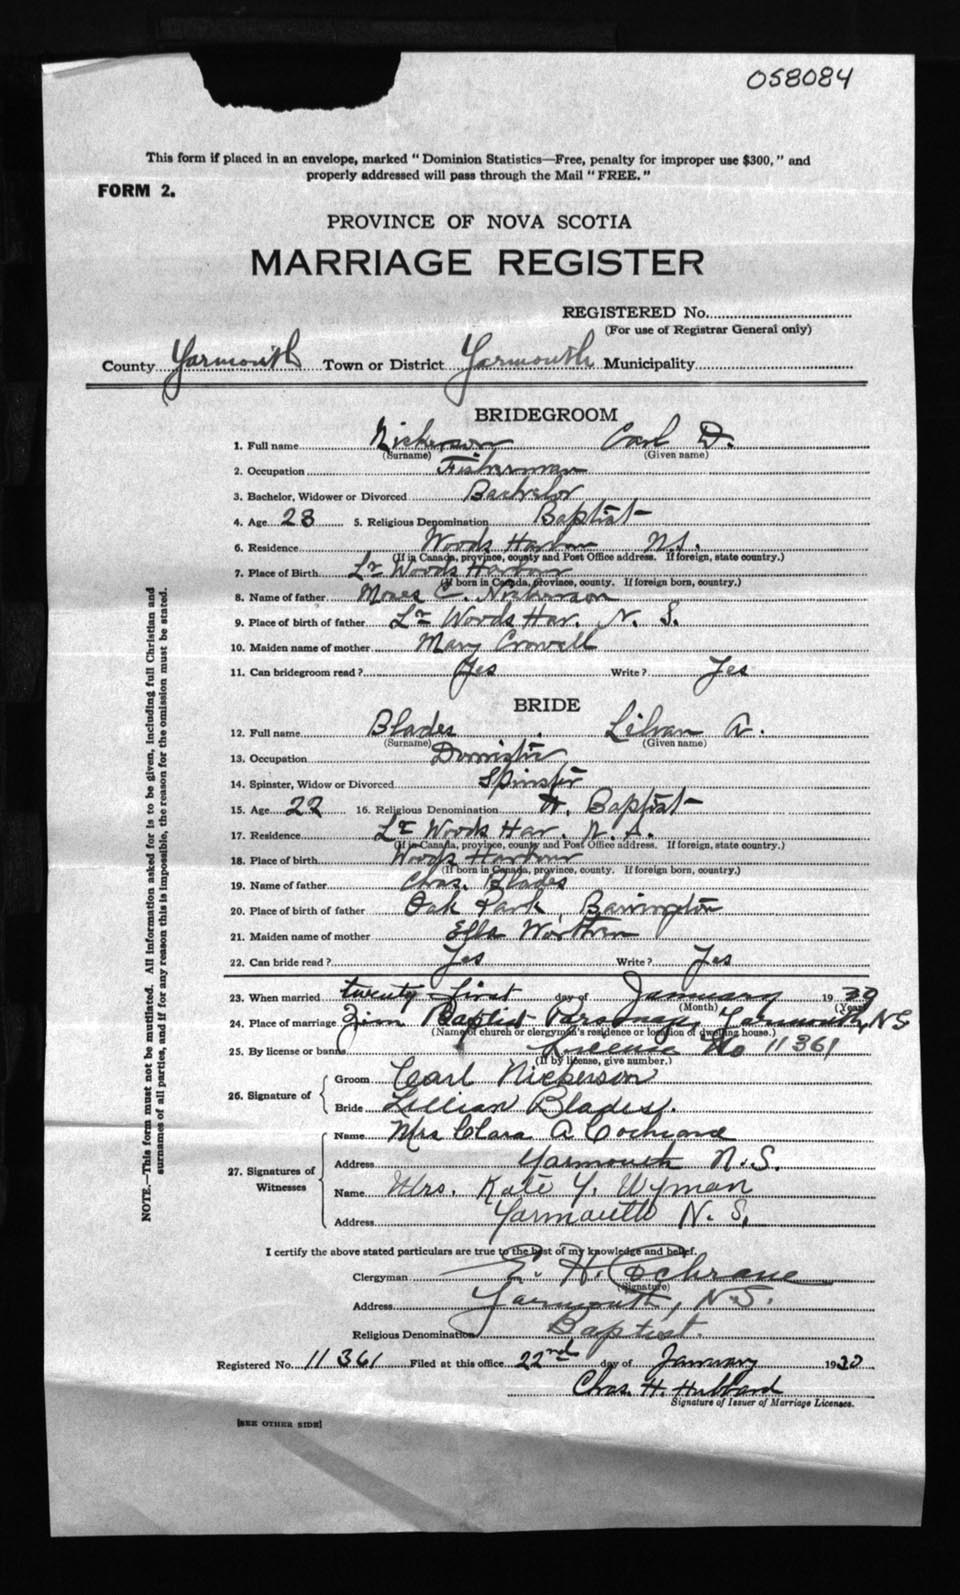 058084
This form if placed in an envelope, marked "Dominion Statistics—Free, penalty for improper use $300," and
properly addressed will pass through the Mail "FREE."
FORM 2.
PROVINCE OF NOVA SCOTIA
MARRIAGE REGISTER
REGISTERED No.
(For use of Registrar General only)
County Yarmouth Town or District Yarmouth Municipality
BRIDEGROOM
1. Full name Nickerson Carl D.
(Surname) (Given name)
2. Occupation Fisherman
3. Bachelor, Widower or Divorced Bachelor
4. Age 23 5. Religious Denomination Baptist
6. Residence Woods Harbour N.S.
(If in Canada, province, county and Post Office address. If foreign, state country.)
7. Place of Birth Lr Woods Harbour
(If born in Canada, province, county. If foreign born, country.)
8. Name of father Moses C. Nickerson
9. Place of birth of father Lr Woods Har. N. S.
10. Maiden name of mother Mary Crowell
11. Can bridegroom read? Yes Write? Yes
BRIDE
12. Full name Blades Lilian A.
(Surname) (Given name)
13. Occupation Domestic
14. Spinster, Widow or Divorced Spinster
15. Age 22 16. Religious Denomination Baptist
17. Residence Lr Woods Har. N. S.
(If in Canada, province, county and Post Office address. If foreign, state country.)
18. Place of birth Woods Harbour
(If born in Canada, province, county. If foreign born, country.)
19. Name of father Chas. Blades
20. Place of birth of father Oak Park, Barrington
21. Maiden name of mother Ella Worthen
22. Can bride read? Yes Write? Yes
23. When married twenty first day of January 19
(Month) (Year)
24. Place of marriage Zion Baptist Parsonage, Yarmouth, NS
(Name of church or clergyman's residence or location of dwelling house.)
25. By license or banns License No 11361
(If by license, give number.)
26. Signature of
Groom Carl Nickerson
Bride Lillian Blades.
27. Signatures of Witnesses
Name Mrs Clara A Cochrane
Address Yarmouth N.S.
Name Mrs. Kate Y. Wyman
Address Yarmouth N. S.
I certify the above stated particulars are true to the best of my knowledge and belief.
Clergyman E. H. Cochrane
(Signature)
Address Yarmouth, N.S.
Religious Denomination Baptist.
Registered No. 11361 Filed at this office 22nd day of January 19
Chas. H. Hubbard
Signature of Issuer of Marriage Licenses.
[SEE OTHER SIDE]
NOTE.—This form must not be mutilated. All information asked for is to be given, including full Christian and
surnames of all parties, and if for any reason this is impossible, the reason for the omission must be stated.